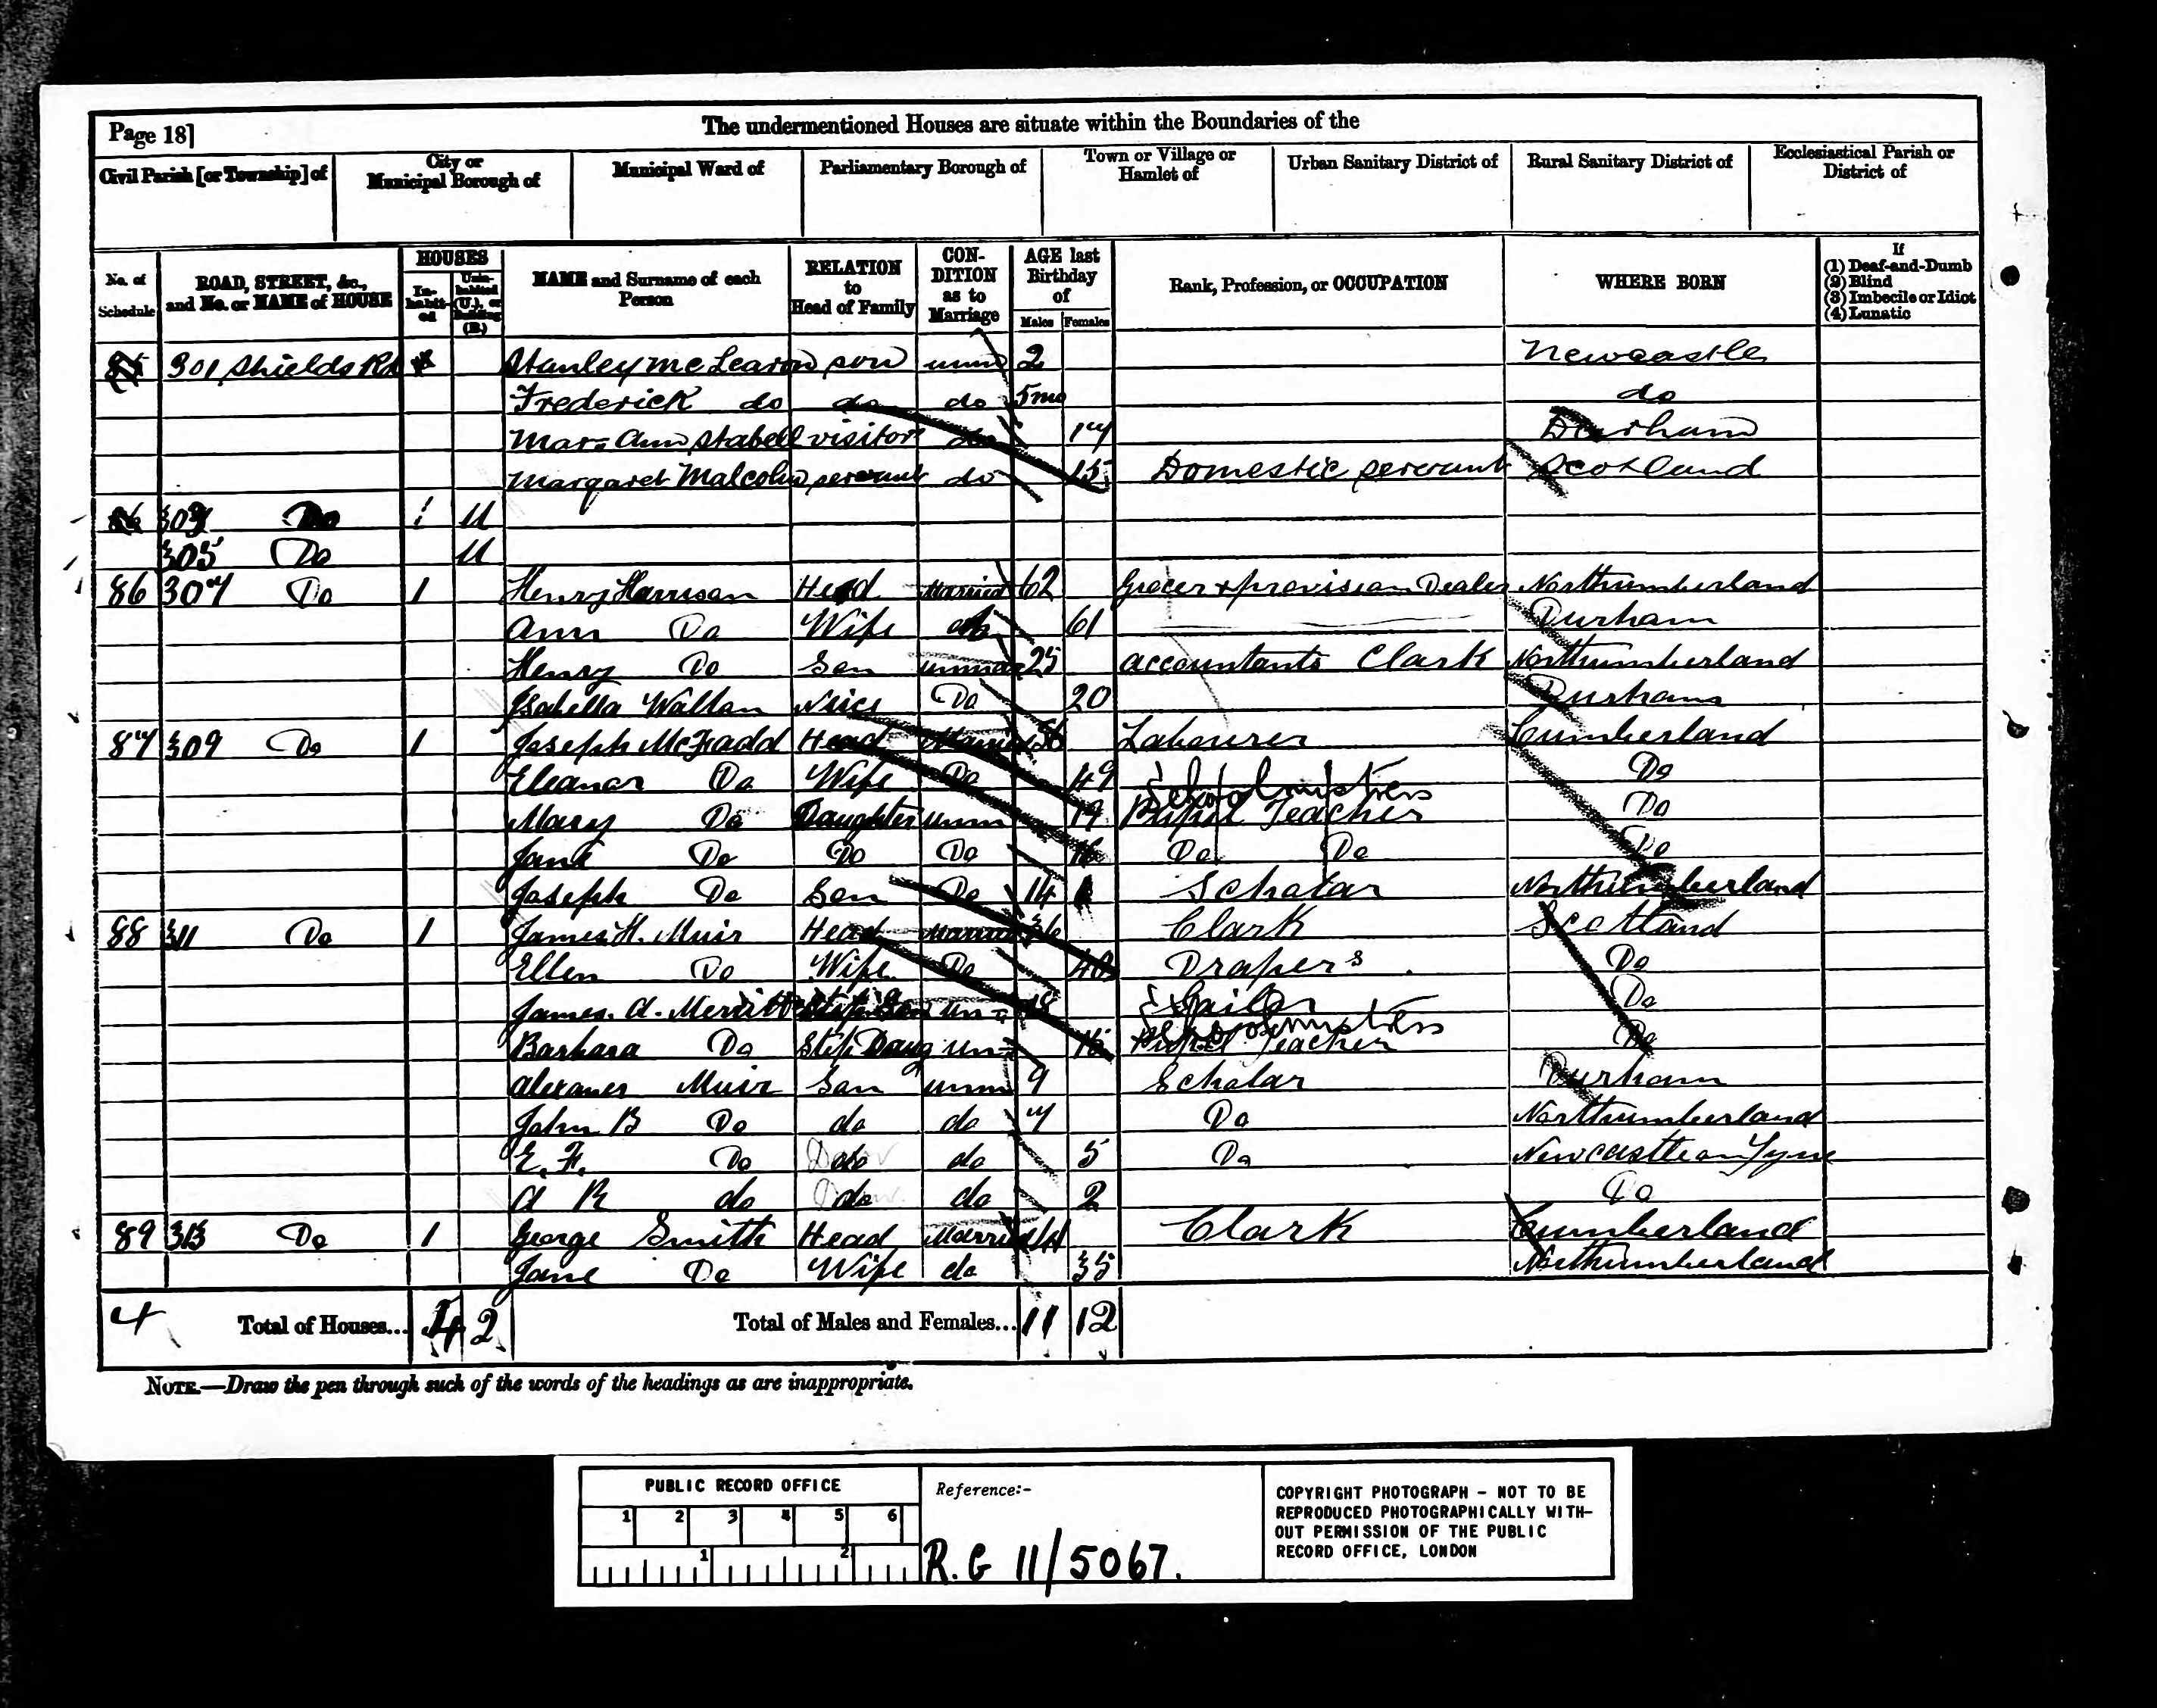 Page 18]
The undermentioned Houses are situate within the Boundaries of the
Civil Parish [or Township] of
City or Municipal Borough of
Municipal Ward of
Parliamentary Borough of
Town or Village or Hamlet of
Urban Sanitary District of
Rural Sanitary District of
Ecclesiastical Parish or District of
No. of Schedule
ROAD, STREET, &c., and No. or NAME of HOUSE
HOUSES
In-habit-ed
Unin-habited (U.), or Building (B.)
NAME and Surname of each Person
RELATION to Head of Family
CON-DITION as to Marriage
AGE last Birthday of
Males
Females
Rank, Profession, or OCCUPATION
WHERE BORN
If
(1) Deaf-and-Dumb
(2) Blind
(3) Imbecile or Idiot
(4) Lunatic
301 Shields Rd Stanley McLearon son unm 2 Newcastle
Frederick do do do 5mo do
Mary Ann Stabell visitor do 14 Durham
Margaret Malcolm servant do 15 Domestic servant Scotland
303 Do 1 U
305 Do U
86 307 Do 1 Henry Harrison Head Married 62 Grocer & provision Dealer Northumberland
Ann Do Wife do 61 Durham
Henry Do Son unmar 25 accountants Clark Northumberland
Isabella Wallan Niece Do 20 Durham
87 309 Do 1 Joseph McFadd Head Married 56 Labourer Cumberland
Eleanor Do Wife Do 49 Do
Schoolmistress
Mary Do Daughter unm 19 Pupil Teacher Do
Jane Do Do Do 16 Do Do Do
Joseph Do Son Do 14 Scholar Northumberland
88 311 Do 1 James H. Muir Head Married 36 Clark Scotland
Ellen Do Wife Do 40 Drapers Do
James. A. Merritt Step Son un 18 Do
Schoolmistress
Barbara Do Step Daug un 16 Pupil Teacher Do
Alexaner Muir Son unm 9 Scholar Durham
John B Do do do 7 Do Northumberland
E. F. Do do do 5 Do Newcastle on Tyne
A R do do do 2 Do
89 313 Do 1 George Smith Head Married 44 Clark Cumberland
Jane Do Wife do 35 Northumberland
4 Total of Houses... 4 2 Total of Males and Females... 11 12
NOTE.—Draw the pen through such of the words of the headings as are inappropriate.
PUBLIC RECORD OFFICE
1 2 3 4 5 6
1 2
Reference:-
R.G 11/5067.
COPYRIGHT PHOTOGRAPH - NOT TO BE
REPRODUCED PHOTOGRAPHICALLY WITH-
OUT PERMISSION OF THE PUBLIC
RECORD OFFICE, LONDON